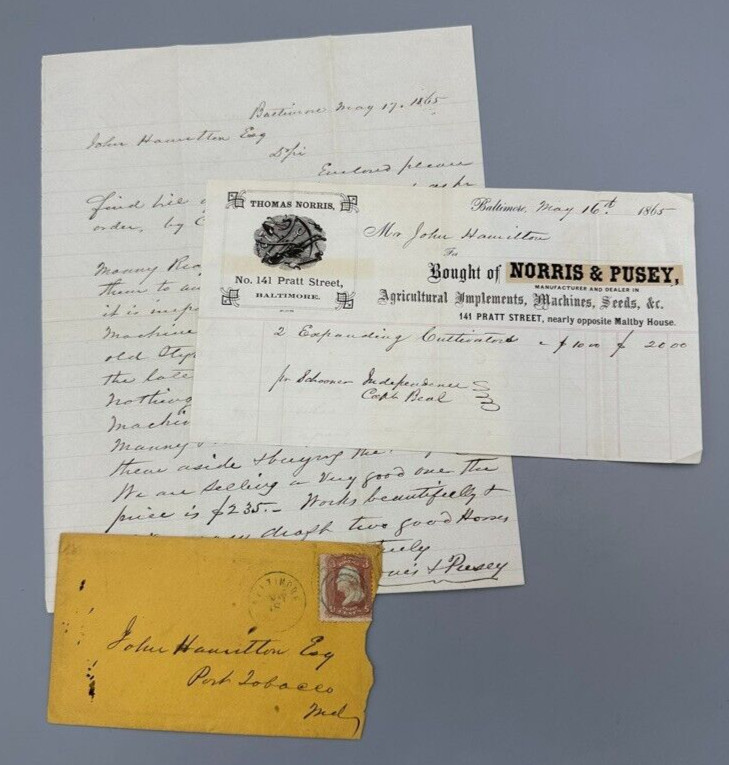 Baltimore May 17. 1865
John Hamilton Esq
Enclosed please
find bill
order, by
Manny
them to
it is
Machine
old
the late
nothing
Machin
Manny
them aside & buying the
We are selling a very good one the
price is $235.– Works beautifully &
draft two good Horses
& Pusey
THOMAS NORRIS,
No. 141 Pratt Street,
BALTIMORE.
Baltimore, May 16th 1865
Mr John Hamilton
Bought of NORRIS & PUSEY,
MANUFACTURER AND DEALER IN
Agricultural Implements, Machines, Seeds, &c.
141 PRATT STREET, nearly opposite Maltby House.
2 Expanding Cultivators $10 00 $ 20 00
pr Schooner Independence
Capt Beal
BALTIMORE
John Hamilton Esq
Port Tobacco
Md